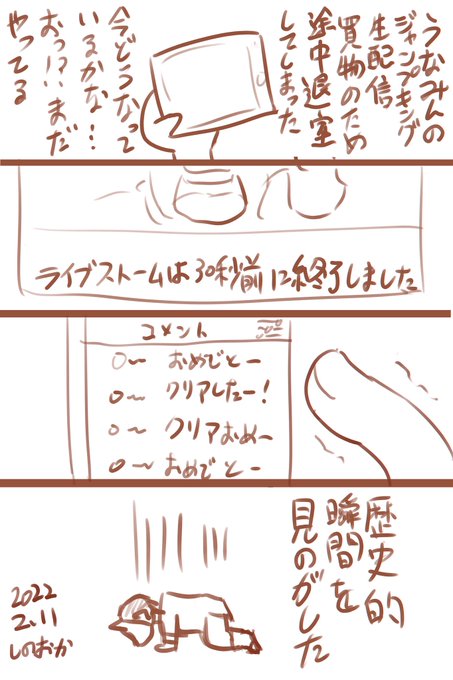 うなみんの
ジャンプキング
生配信
買物のため
途中退室
してしまった
今どうなって
いるかな…
おっ!?いまだ
やってる
ライブストームは30秒前に終了しました
コメント
おめでとー
クリアしたー!
クリアおめー
おめでとー
歴史的
瞬間を
見のがした
2022
2.11
しのおか